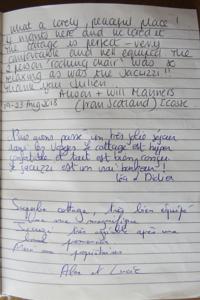 What a lovely, peaceful place!
nights here and we loved it
The cottage is perfect - very
comfortable and well equiped. The
2 person "rocking chair" was so
relaxing as was the jacuzzi!"
Thank you Julien
Alison + Will Manners
19-23 Aug 2018 (from Scotland) Ecosse
Nous avons passé un très jolie séjour
dans les Vosges. Le cottage est hyper
confortable et tout est bien conçu.
Le jacuzzi est un vrai bonheur!
Léa & Didier
Superbe cottage, très bien équipé
vue magnifique
Jacuzzi très agréable après une
bonne
Merci aux propriétaires
et